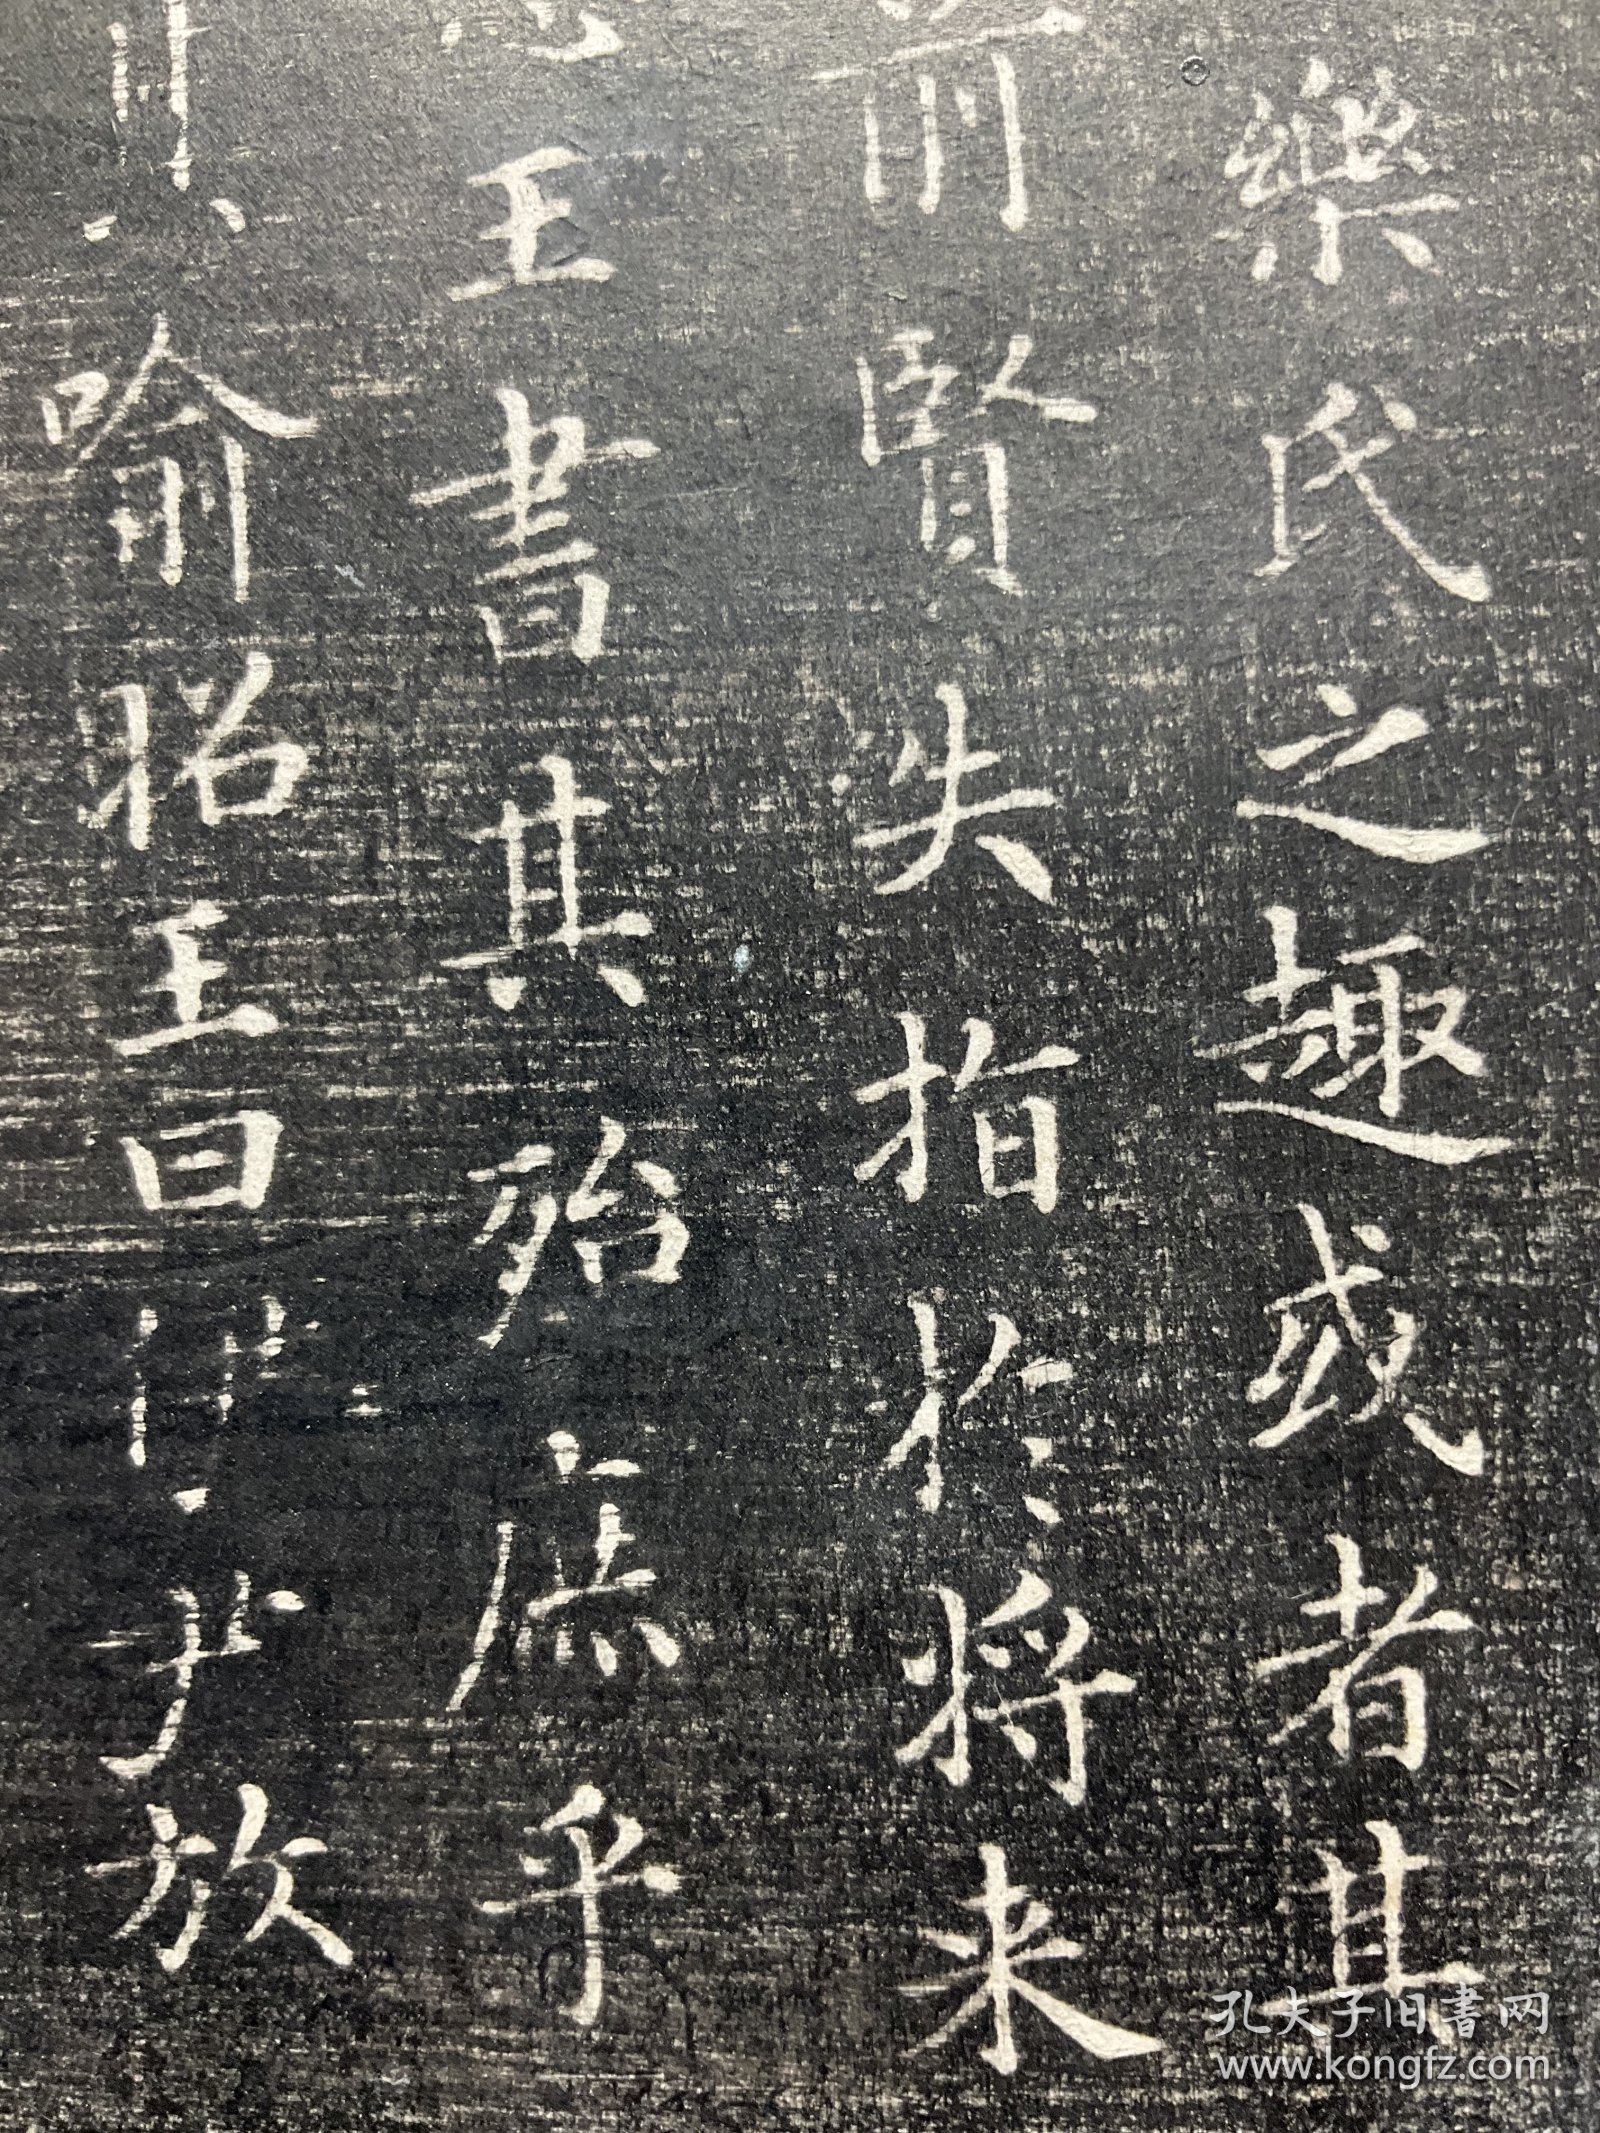 樂氏之趣或者其
前賢失指於將来
王書其殆庶乎
其喻昭王曰伊尹放
孔夫子旧書网
www.kongfz.com